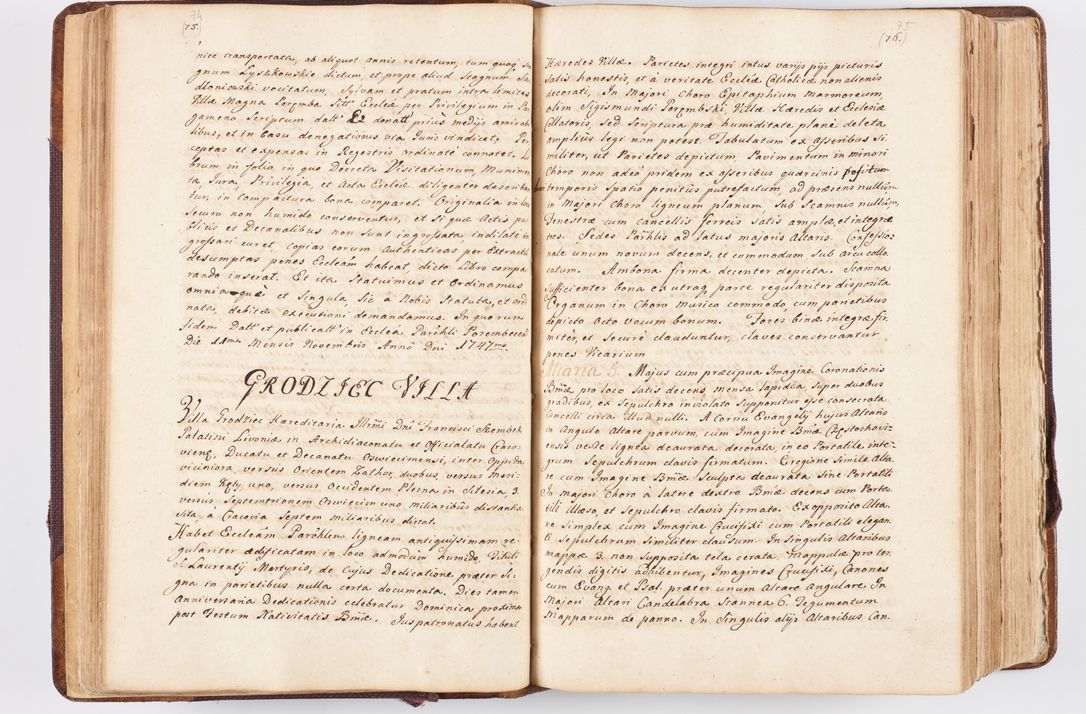 74
(75.)
nice transportata, ab aliquot annis retentum, tum quoq Sta
gnum Lyszkowskie dictum, et prope aliud Stagnum Sa
dloniowski vocitatum, Sylvam et pratum intra limites
Villæ Magna Poręmba sitt Ecclæ per Privilegium in Per
gameno Scriptum datt Et donatt prius medijs amicabi
libus, et in Casu denegationis via Juris vindicet, Per
ceptas et expensas in Regestris ordinate connotet, Li
brum in folio in quo Decreta Visitationum, Munimen
ta Jura, Privilegia, et Acta Ecclæ diligenter describan
tur, in compactura bona comparet. Originalia in loco
Securo non humido conserventur, et si quæ Actis pu
blicis et Decanalibus non sunt ingrossata indilate in
grossari curet, copias eorum Authenticas per Extractu
desumptas penes Ecclam habeat, dicto Libro compa
rando inserat. Et ita Statuimus et Ordinamus
omnia quæ et Singula, Sic à Nobis Statuta, et ordi
nata, debitæ executioni demandamus. In quorum
fidem Datt et publicatt in Ecclea Parchli Porembecen
Die 11ma Mensis Novembris Anno Dni 1747mo.
GRODZIEC VILLA
Villa Grodziec Hæreditaria Illrmi Dni Francisci Szembek
Palatini Livoniæ in Archidiaconatu et Officialatu Craco-
vienę, Ducatu et Decanatu Oswiecimensi, inter Oppida
viciniora, versus Orientem Zathor duobus, versus Meri-
diem Kęty uno, versus Occidentem Plesna in Silesia, 3.
versus Septemtrionem Oswiecim uno miliaribus distantia
sita, à Cracovia Septem miliaribus distat.
Habet Eccleam Parohlem ligneam antiquissimam re-
gulariter ædificatam in loco admodum humido, Tituli
S. Laurentij Martyris, de Cujus Dedicatione præter Si-
gna in parietibus nulla certa documenta. Dies tamen
Anniversaria Dedicationis celebratur Dominica proxima
post Festum Nativitatis Bmæ. Juspatronatus habent
75
(76.)
Hæredes Villæ. Parietes integri intus varijs pijs picturis
satis honestis, et à veritate Ecclæ Catholicæ non alienis
decorati, In Majori Choro Epitaphium Marmoreum,
olim Sigismundi Porębski Villæ Hæredis et Ecclesiæ
Collatoris sed Scriptura præ humiditate planè deleta
ampliùs legi non potest. Tabulatum ex asseribus Si
militer, ut Parietes depictum, Pavimentum in minori
Choro non adeo pridem ex asseribus quercinis positum
temporis spatio penitùs putrefactum, ad præsens nullum,
in Majori Choro ligneum planum, sub Scamnis nullum,
Fenestræ cum cancellis ferreis satis amplæ, et integræ
tres. Sedes Parhlis ad latus majoris Altaris. Confessio-
nale unum novum decens, et commodum sub Arcu collo
catum. Ambona firma decenter depicta. Scamna
sufficienter bona ex utraq parte regulariter disposita
Organum in Choro musico commodo, cum parietibus
depicto Octo vocum bonum. Fores binæ integræ fir-
miter, et Securè clauduntur, claves conservantur
penes Vicarium
Altaria 5. Majus cum præcipua Imagine Coronationis
Bmæ pro loco satis decens, mensa lapidea super duobus
gradibus, ex Sepulchro inviolato supponitur esse consecrata
Cancelli circa illud nulli. A Cornu Evangelij hujus Altaris
in Angulo Altare parvum, cum Imagine Bmæ Częstochovi-
ensis veste lignea deaurata decorata, in eo Portatile inte-
grum Sepulchrum clavis firmatum. E regione simile Alta-
re cum Imagine Bmæ Sculpta deaurata sine Portatili
In majori Choro à latere dextro Bmæ decens cum Porta-
tili illæso, et Sepulchro clavis firmato. Ex opposito Alta-
re simplex cum Imagine Crucifixi cum Portatili elegan-
ti Sepulchrum similiter clausum. In Singulis Altaribus
mappæ 3. non supposita tela cerata, Mappulæ pro ter-
gendis digitis adhibentur, Imagines Crucifixi, Canones
cum Evang. et Psal. præter unum Altare Angulare. In
Majori Altari Candelabra Stannea 6. Tegumentum
Mapparum de panno. In Singulis alijs Altaribus Can.